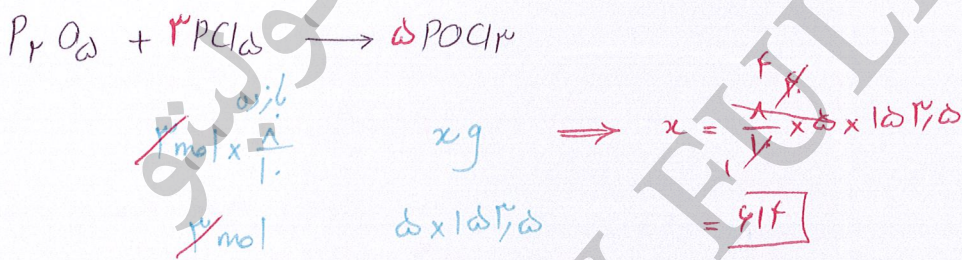 P۲O۵ + ۳PCl۵ → ۵POCl۳
بازده
۳ mol × ۸/۱۰ x g ⇒ x = ۸/۱۰ × ۵ × ۱۵۳,۵
۳ mol ۵ × ۱۵۳,۵ = ۶۱۴